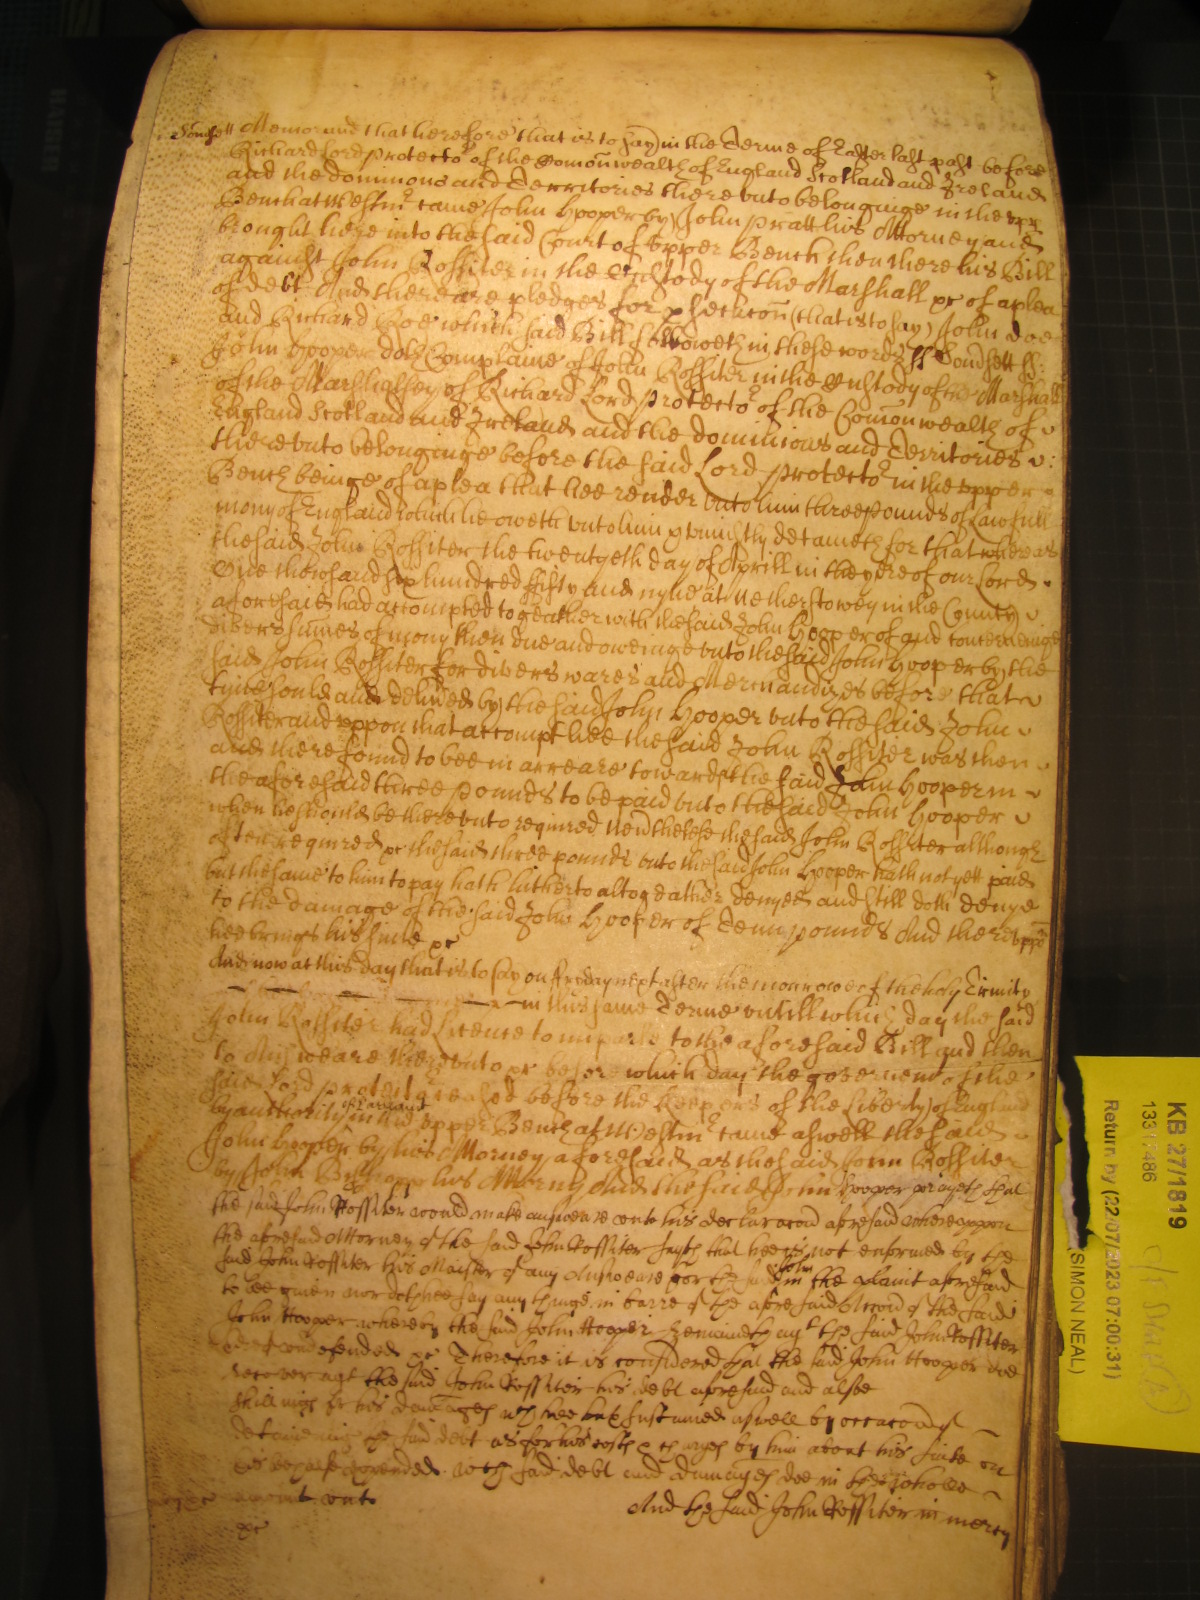 Somsett Memorand that heretofore that is to say in the Terme of Easter last past before
Richard Lord Protector of the Comonwealth of England Scotland and Ireland
and the dominions and Territories there unto belonginge in the upp
Bench at Westmr came John Hooper by John Pratt his Attorney and
brought here into the said Court of Upper Bench then there his Bill
against John Rossiter in the Custody of the Marshall &c of a plea
of debt And there are pledges for psecucon (that is to say) John Doe
and Richard Roe which said Bill followeth in these words ss Somsett ss:
John Hooper doth Complaine of John Rossiter in the Custody of the Marshall
of the Marshalsey of Richard Lord Protector of the Comonwealth of
England Scotland and Ireland and the dominions and Territories
there unto belonginge before the said Lord Protector in the upper
Bench beinge of a plea that hee render unto him three pounds of lawfull
mony of England which he oweth unto him & uniustly detaineth for that whereas
the said John Rossiter the twentyeth day of Aprill in the yere of our Lord
One thousand six hundred fifty and nyne at Netherstowey in the County
aforesaid had accompted togeather with the said John Hooper of and concerninge
divers sumes of mony then due and oweinge unto the said John Hooper by the
said John Rossiter for divers wares and Merchandizes before that
tyme sould and delived by the said John Hooper unto the said John
Rossiter and uppon that accompt hee the said John Rossiter was then
and there found to bee in arreare towards the said John Hooper in
the aforesaid three pounds to be paid unto the said John Hooper
when he should be there unto required Nevtheles the said John Rossiter although
often required &c the said three pounds unto the said John Hooper hath not yett paid
but the same to him to pay hath hitherto altogeather denyed and still doth denye
to the damage of the said John Hooper of Tenn pounds And thereuppon
hee brings his suite &c
And now at this day that is to say on Fryday next after the morrowe of the holy Trinity
in this same Terme untill which day the said
John Rossiter had Licence to imparle to the aforesaid Bill and then
to Answeare thereunto &c before which day the governemt of the
said Lord Protector ceased before the Keepers of the Liberty of England
by authority of Parliamt in the upper Bench at Westmr came aswell the said
John Hooper by his Attorney aforesaid as the said John Rossiter
by John his Attorny And the said John Hooper prayeth that
the said John Rossiter would make answeare unto his declaracon aforesaid whereuppon
the aforesaid Attorney of the said John Rossiter sayth that hee is not enformed by the
said John Rossiter his Master of any Answeare for the said John in the plaint aforesaid
to bee given nor doth hee say any thinge in barre of the aforesaid Accon of the said
John Hooper whereby the said John Hooper remaineth agt the said John Rossiter
therein undefended &c Therefore it is considered that the said John Hooper doe
recover agt the said John Rossiter his debt aforesaid and alsoe
shillings for his damages wch hee hath sustained aswell by occacon of
detaineing the said debt as for his costs & charges by him about his suite on
his behalfe expended. wch said debt and damages doe in the whole
amount unto And the said John Rossiter in mercy
&c
KB 27/1819
13317486
Return by (22/07/2023 07:00:31)
(SIMON NEAL)